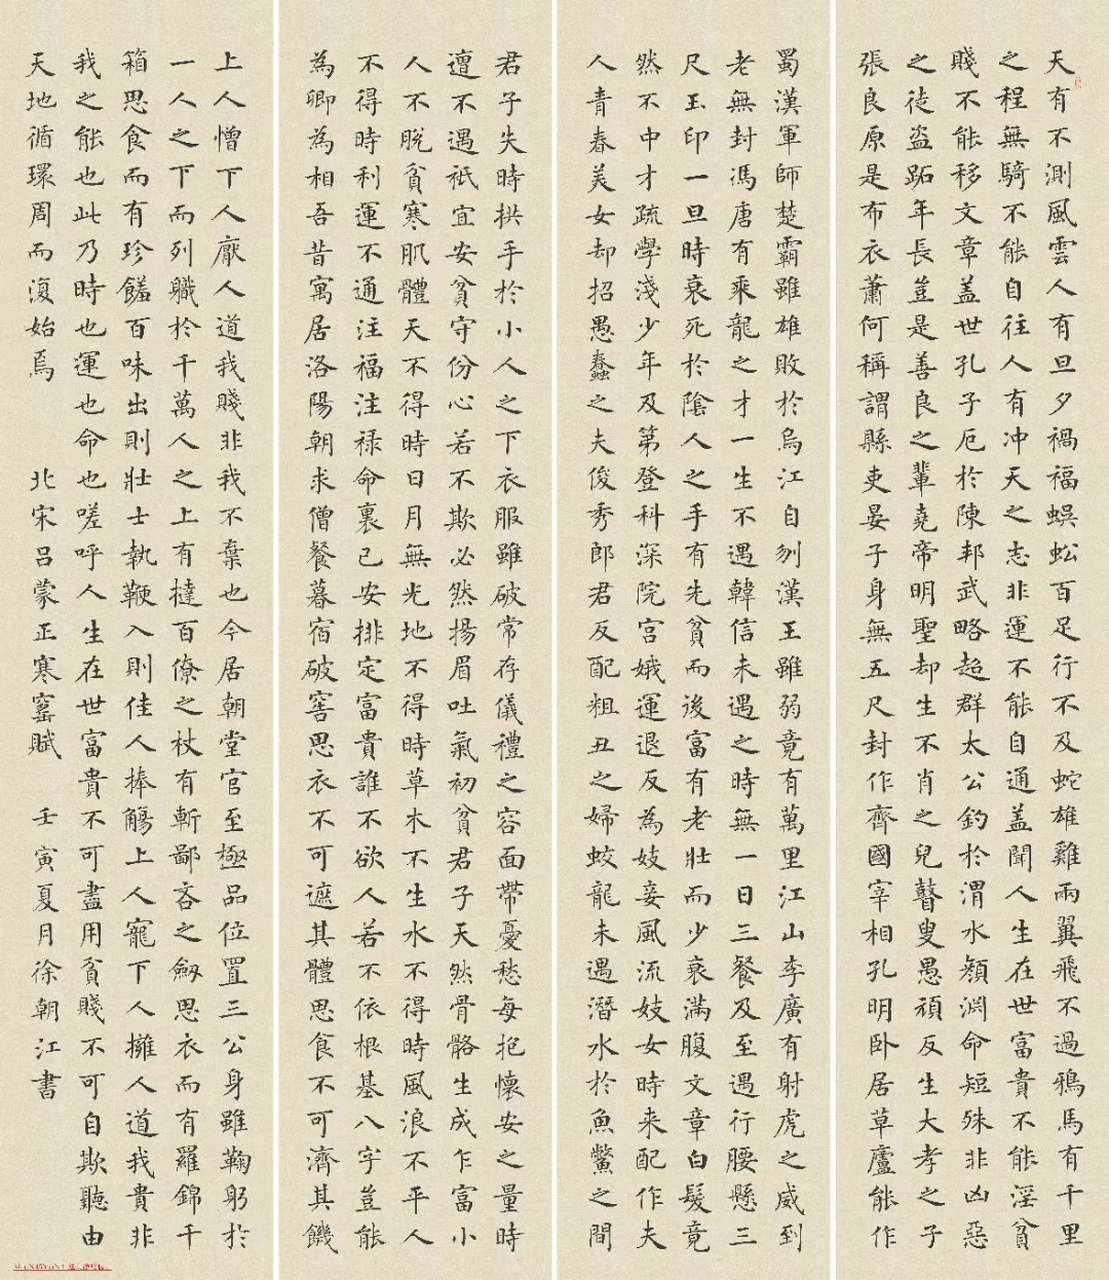 天有不測風雲人有旦夕禍福蜈蚣百足行不及蛇雄雞兩翼飛不過鴉馬有千里
之程無騎不能自往人有冲天之志非運不能自通盖聞人生在世富貴不能淫貧
賤不能移文章盖世孔子厄於陳邦武略超群太公釣於渭水顏淵命短殊非凶惡
之徒盜跖年長豈是善良之輩堯帝明聖却生不肖之兒瞽叟愚頑反生大孝之子
張良原是布衣蕭何稱謂縣吏晏子身無五尺封作齊國宰相孔明卧居草廬能作
蜀漢軍師楚霸雖雄敗於烏江自刎漢王雖弱竟有萬里江山李廣有射虎之威到
老無封馮唐有乘龍之才一生不遇韓信未遇之時無一日三餐及至遇行腰懸三
尺玉印一旦時衰死於陰人之手有先貧而後富有老壯而少衰滿腹文章白髮竟
然不中才疏學淺少年及第登科深院宮娥運退反為妓妾風流妓女時来配作夫
人青春美女却招愚蠢之夫俊秀郎君反配粗丑之婦蛟龍未遇潛水於魚鱉之間
君子失時拱手於小人之下衣服雖破常存儀禮之容面帶憂愁每抱懷安之量時
遭不遇衹宜安貧守份心若不欺必然揚眉吐氣初貧君子天然骨骼生成乍富小
人不脫貧寒肌體天不得時日月無光地不得時草木不生水不得時風浪不平人
不得時利運不通注福注禄命裏已安排定富貴誰不欲人若不依根基八字豈能
為卿為相吾昔寓居洛陽朝求僧餐暮宿破窖思衣不可遮其體思食不可濟其饑
上人憎下人厭人道我賤非我不棄也今居朝堂官至極品位置三公身雖鞠躬於
一人之下而列職於千萬人之上有撻百僚之杖有斬鄙吝之劍思衣而有羅錦千
箱思食而有珍饈百味出則壯士執鞭入則佳人捧觴上人寵下人擁人道我貴非
我之能也此乃時也運也命也嗟呼人生在世富貴不可盡用貧賤不可自欺聽由
天地循環周而復始焉 北宋吕蒙正寒窰賦 壬寅夏月徐朝江書